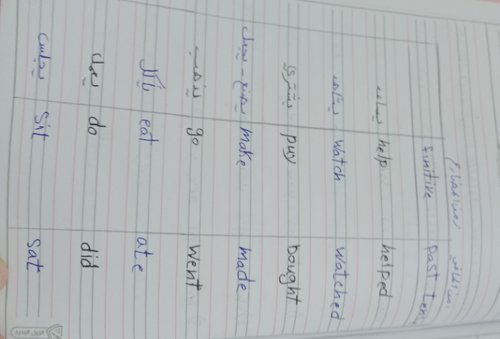 finitive past ten
يساعد help helped
يشاهد watch watched
يشتري puy bought
يصنع - يجعل make made
يذهب go went
يأكل eat ate
يفعل do did
يجلس sit sat